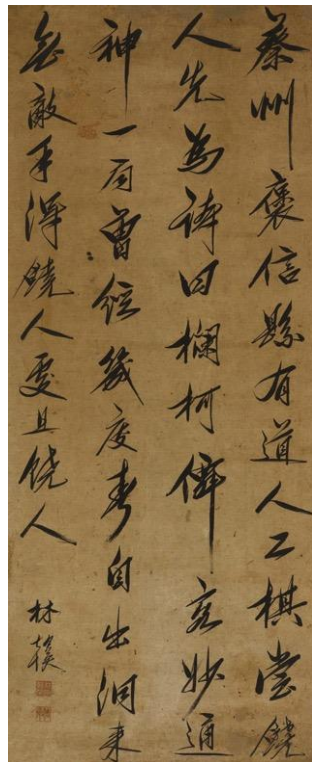 蔡州褒信縣有道人工棋嘗饒
人先為詩曰欄柯僊客妙通
神一局曾經幾度春自出洞來
無敵手得饒人處且饒人
林